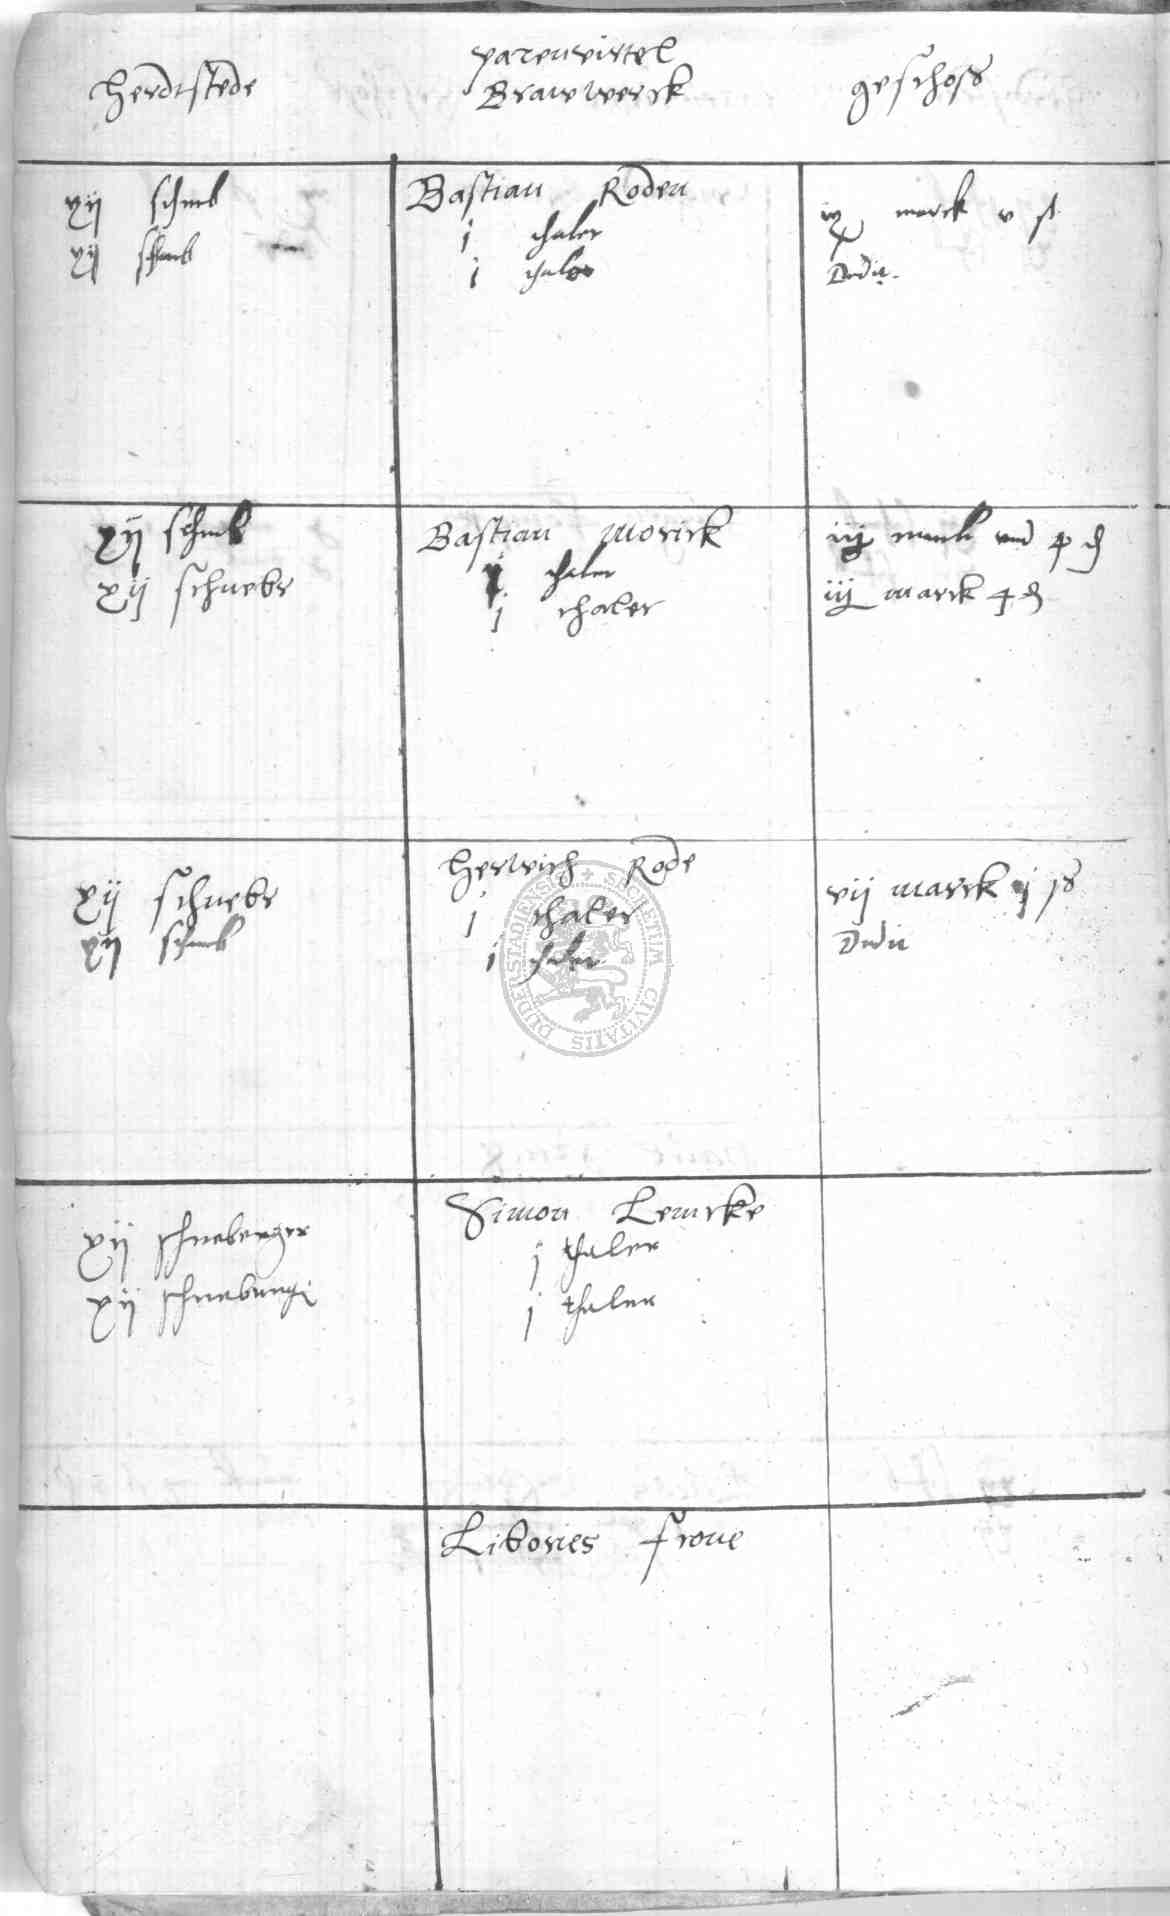 Herdtstede
parenvirtel
Brauwerck
geschoss
xij schneb
xij schneb
Bastian Roden
j thaler
j thaler
ix marck v ß
Dedit.
xij schneb
xij schnebr
Bastian Morick
j thaler
j thaler
iij marck und 4 ₰
iij marck 4 ₰
xij schnebr
xij schneb
Herwich Rode
j thaler
j thaler
vij marck j ß
Dedit
xij schneberger
xij schneberg
Simon Lemcke
j thaler
j thaler
Libories frone
SECRETUM CIVITATIS DUDERSTADIENSIS